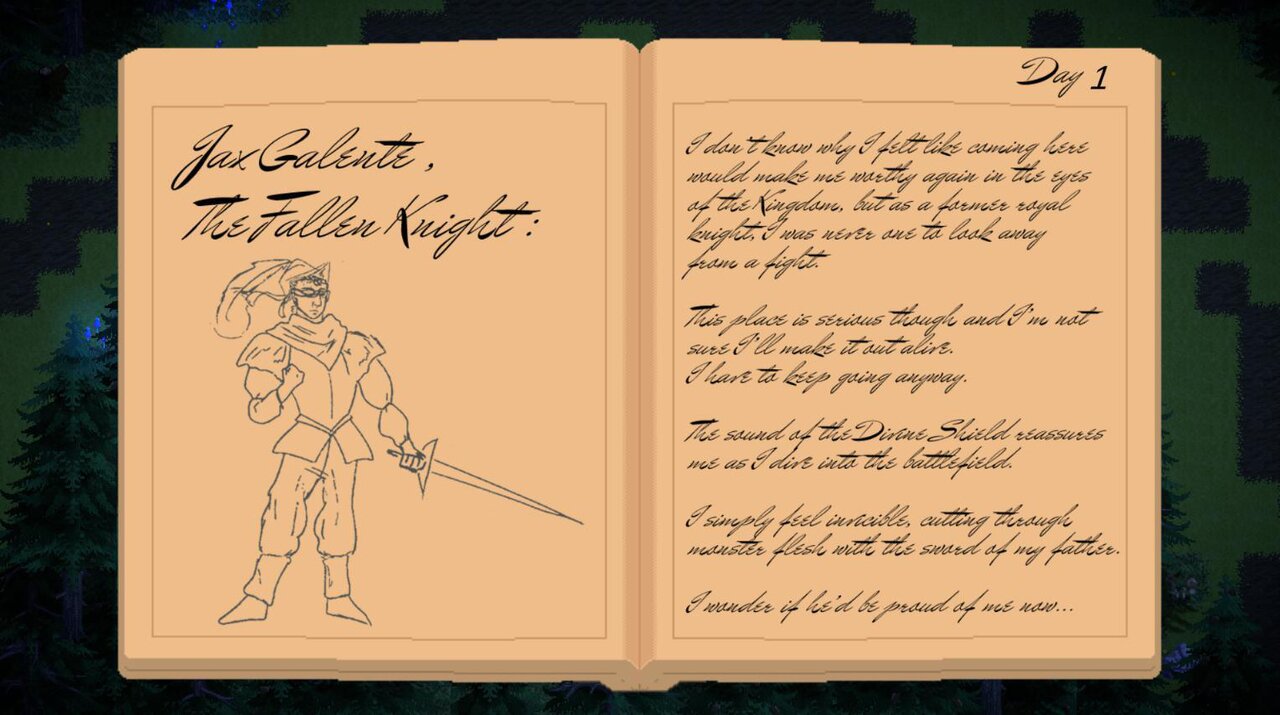 Jax Galente,
The Fallen Knight:
Day 1
I don't know why I felt like coming here
would make me worthy again in the eyes
of the Kingdom, but as a former royal
knight, I was never one to look away
from a fight.
This place is serious though and I'm not
sure I'll make it out alive.
I have to keep going anyway.
The sound of the Divine Shield reassures
me as I dive into the battlefield.
I simply feel invicible, cutting through
monster flesh with the sword of my father.
I wonder if he'd be proud of me now...